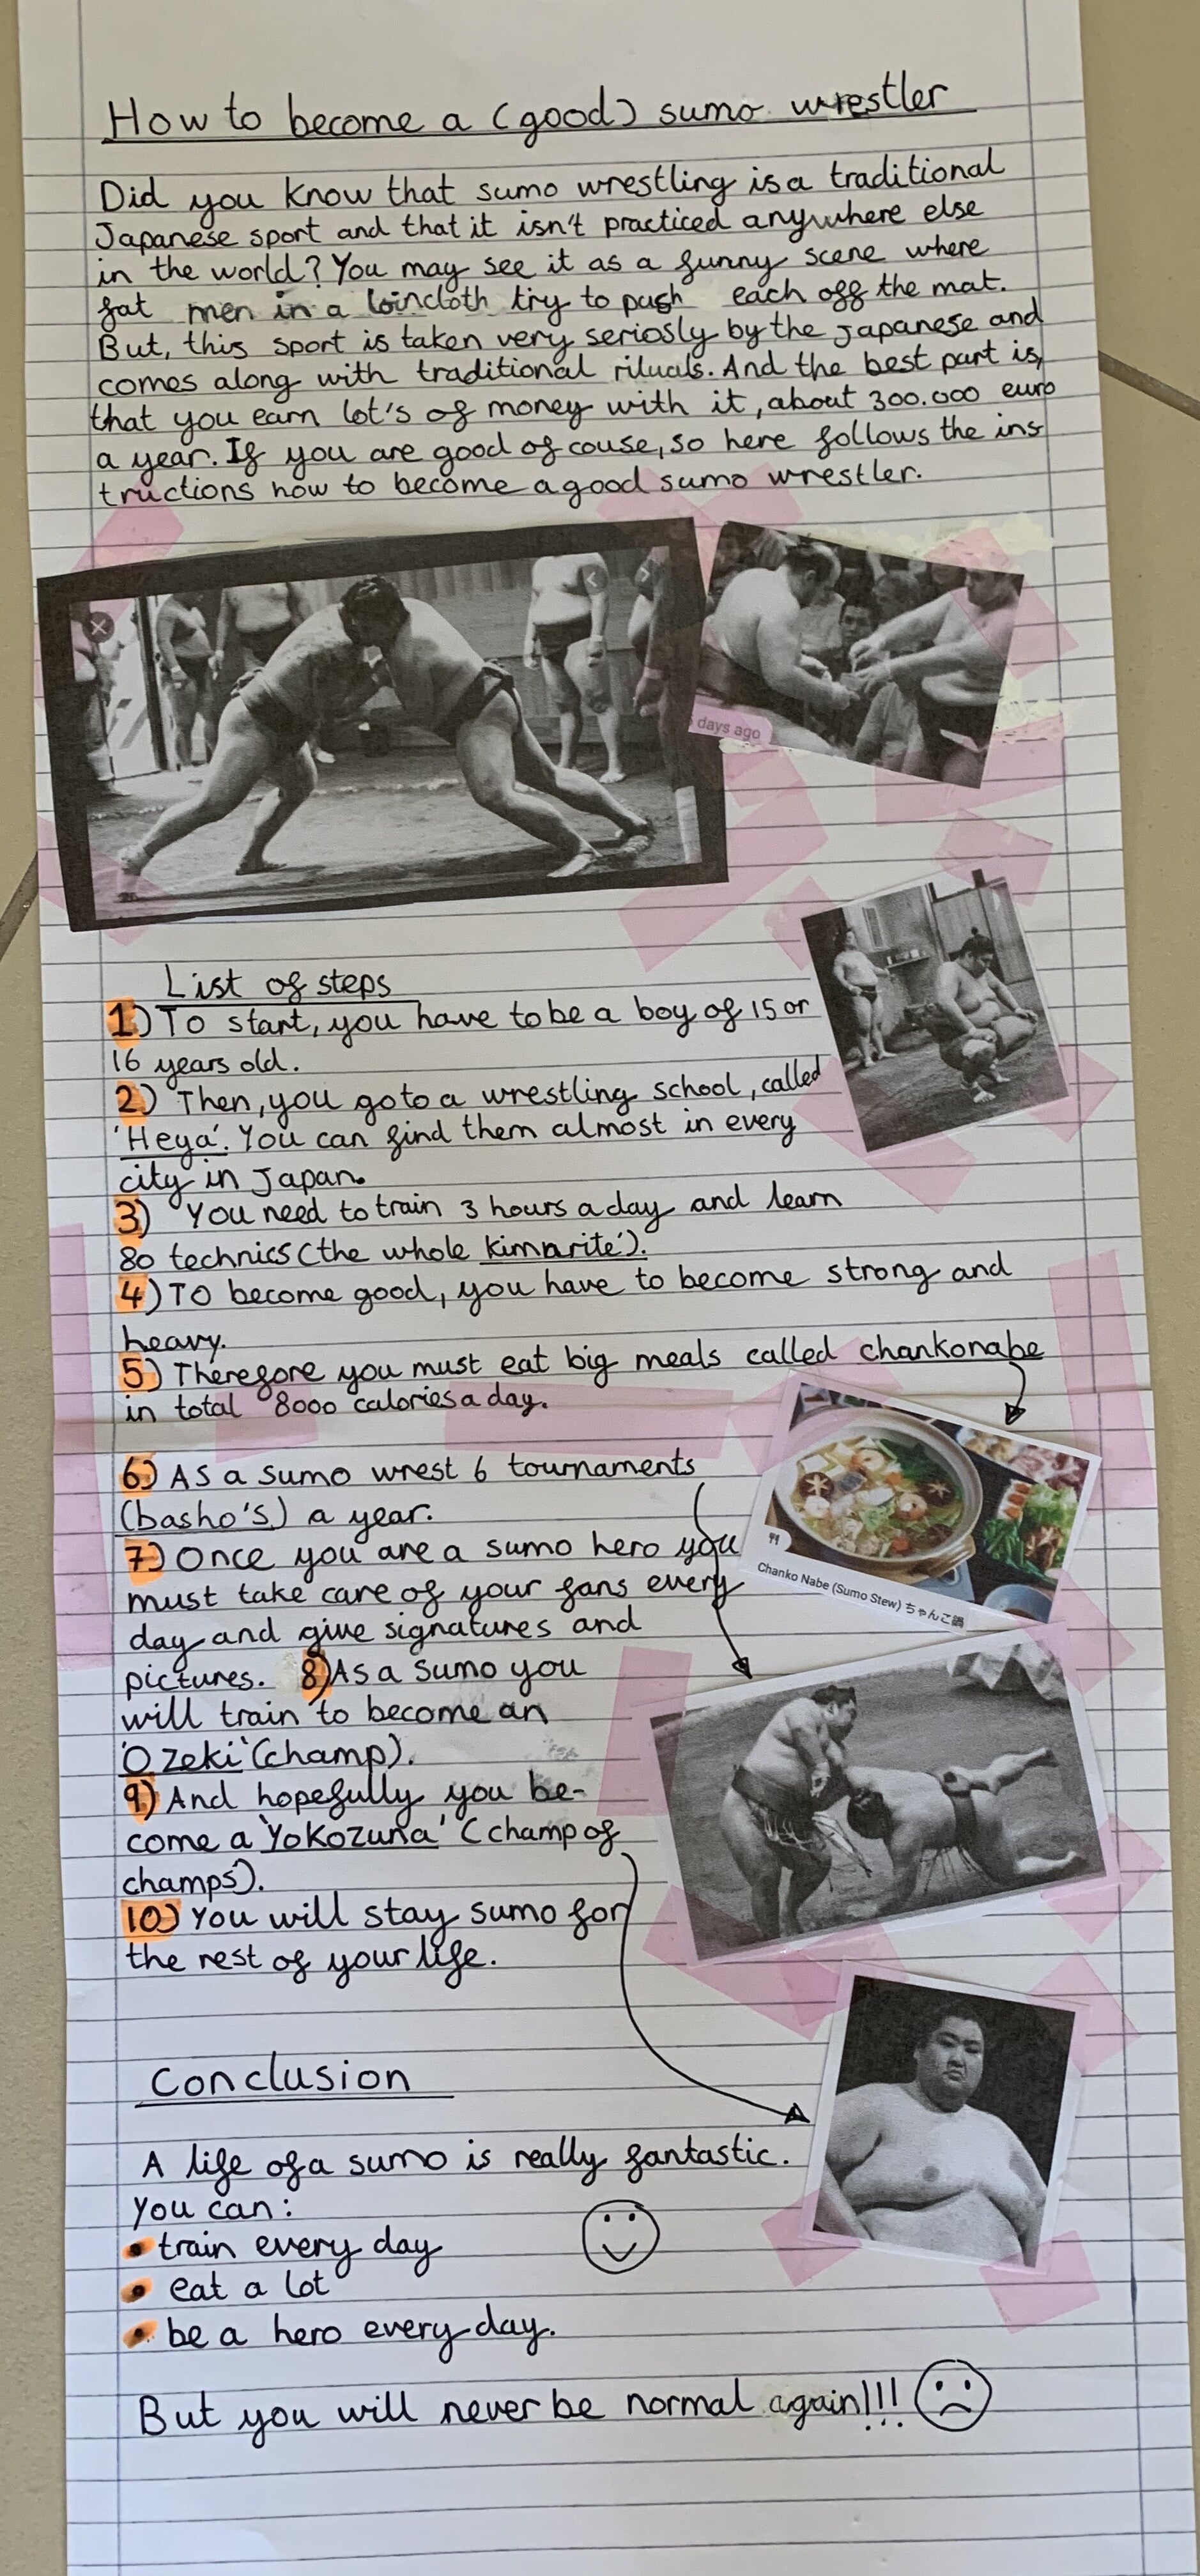 How to become a (good) sumo wrestler
Did you know that sumo wrestling is a traditional
Japanese sport and that it isn't practiced anywhere else
in the world? You may see it as a funny scene where
fat men in a loincloth try to push each off the mat.
But, this sport is taken very seriosly by the Japanese and
comes along with traditional rituals. And the best part is,
that you earn lot's of money with it, about 300.000 euro
a year. If you are good of couse, so here follows the ins
tructions how to become a good sumo wrestler.
days ago
List of steps
1) To start, you have to be a boy of 15 or
16 years old.
2) Then, you go to a wrestling school, called
'Heya'. You can find them almost in every
city in Japan.
3) You need to train 3 hours a day and learn
80 technics (the whole kimarite').
4) To become good, you have to become strong and
heavy.
5) Therefore you must eat big meals called chankonabe
in total 8000 calories a day.
6) As a sumo wrest 6 tournaments
(basho's) a year.
Chanko Nabe (Sumo Stew) ちゃんこ鍋
7) Once you are a sumo hero you
must take care of your fans every
day and give signatures and
pictures. 8) As a sumo you
will train to become an
'Ozeki' (champ).
9) And hopefully you be-
come a 'Yokozuna' (champ of
champs').
10) You will stay sumo for
the rest of your life.
Conclusion
A life of a sumo is really fantastic.
You can:
• train every day
• eat a lot
• be a hero every day.
But you will never be normal again!!!